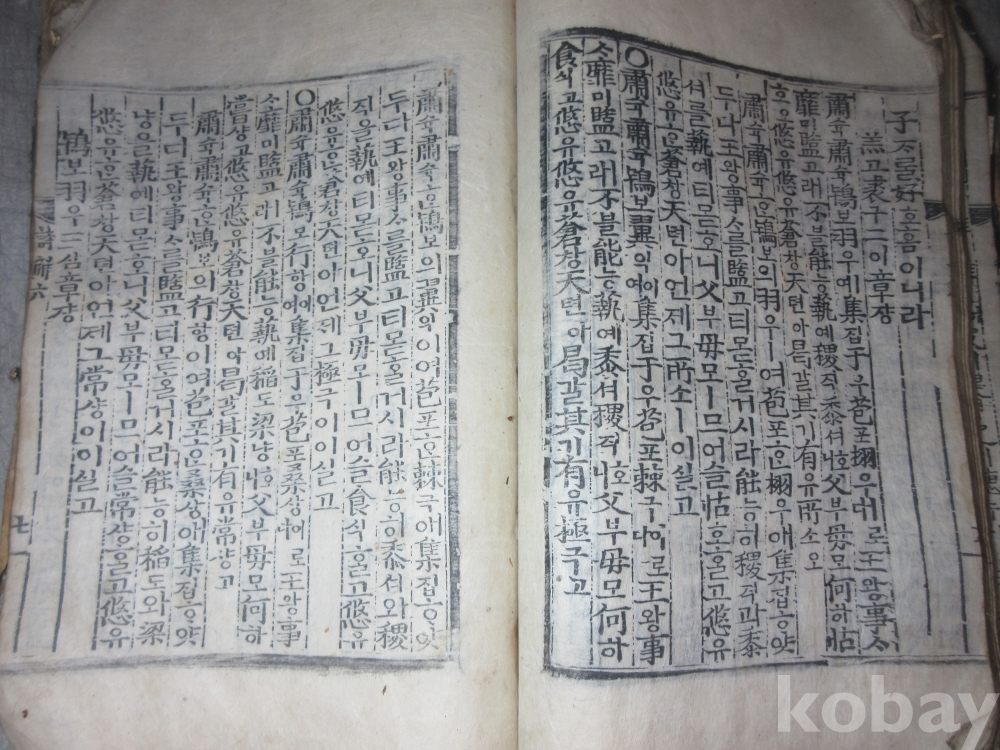 子ᄌᆞ를好호홈이니라
羔고裘구二이章쟝
肅슉肅슉鴇보羽우예集집于우苞포栩우ㅣ로다王왕事ᄉᆞ
靡미盬고ㅣ라不블能능蓺예稷직黍셔호니父부母모何하怙
호오悠유悠유蒼창天텬아曷갈其기有유所소오
肅슉肅슉ᄒᆞᆫ鴇보의羽우ㅣ여苞포ᄒᆞᆫ栩우애集집ᄒᆞ얏
두다王왕事ᄉᆞ를盬고티몯ᄒᆞᆯ거시라能능히稷직과黍
셔를蓺예티몯호니父부母모ㅣ므어슬怙호ᄒᆞ올고悠유
悠유ᄒᆞᆫ蒼창天텬아언제그所소ㅣ이실고
○肅슉肅슉鴇보翼익이여集집于우苞포棘극이로다王왕事
ᄉᆞ靡미盬고ㅣ라不블能능蓺예黍셔稷직호니父부母모何하
食식고悠유悠유蒼창天텬아曷갈其기有유極극고
肅슉肅슉ᄒᆞᆫ鴇보의翼익이여苞포ᄒᆞᆫ棘극애集집ᄒᆞ얏
두다王왕事ᄉᆞ를盬고티몯ᄒᆞᆯ거시라能능히黍셔와稷
직을蓺예티몯호니父부母모ㅣ므어슬食식ᄒᆞ올고悠유
悠유ᄒᆞᆫ蒼창天텬아언제그極극이이실고
○肅슉肅슉鴇보行항이여集집于우苞포桑상이로다王왕事
ᄉᆞ靡미盬고ㅣ라不블能능蓺예稻도粱냥호니父부母모何하
嘗샹고悠유悠유蒼창天텬아曷갈其기有유常샹고
肅슉肅슉ᄒᆞᆫ鴇보의行항이여苞포ᄒᆞᆫ桑상애集집ᄒᆞ얏
두다王왕事ᄉᆞ를盬고티몯ᄒᆞᆯ거시라能능히稻도와粱
냥을蓺예티몯호니父부母모ㅣ므어슬嘗샹ᄒᆞ올고悠유
悠유ᄒᆞᆫ蒼창天텬아언제그常샹이이실고
鴇보羽우三삼章쟝
詩解六
七
kobay